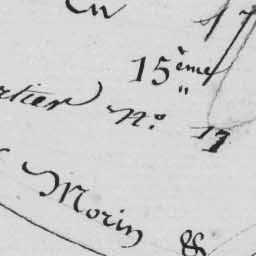 15ème
rtier n.o 17
Morin &